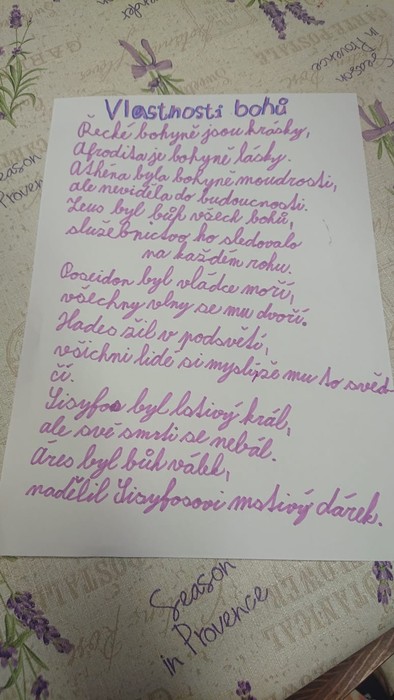 Vlastnosti bohů
Řecké bohyně jsou krásky,
Afrodita je bohyně lásky.
Athéna byla bohyně moudrosti,
ale neviděla do budoucnosti.
Zeus byl bůh všech bohů,
služebnictvo ho sledovalo
na každém rohu.
Poseidon byl vládce moří,
všechny vlny se mu dvoří.
Hades žil v podsvětí,
všichni lidé si myslí, že mu to svěd-
čí.
Sisyfos byl lstivý král,
ale své smrti se nebál.
Áres byl bůh válek,
nadělil Sisyfosovi mstivý dárek.
Season
in Provence
Season
in Provence
in Provence
Season
in Provence